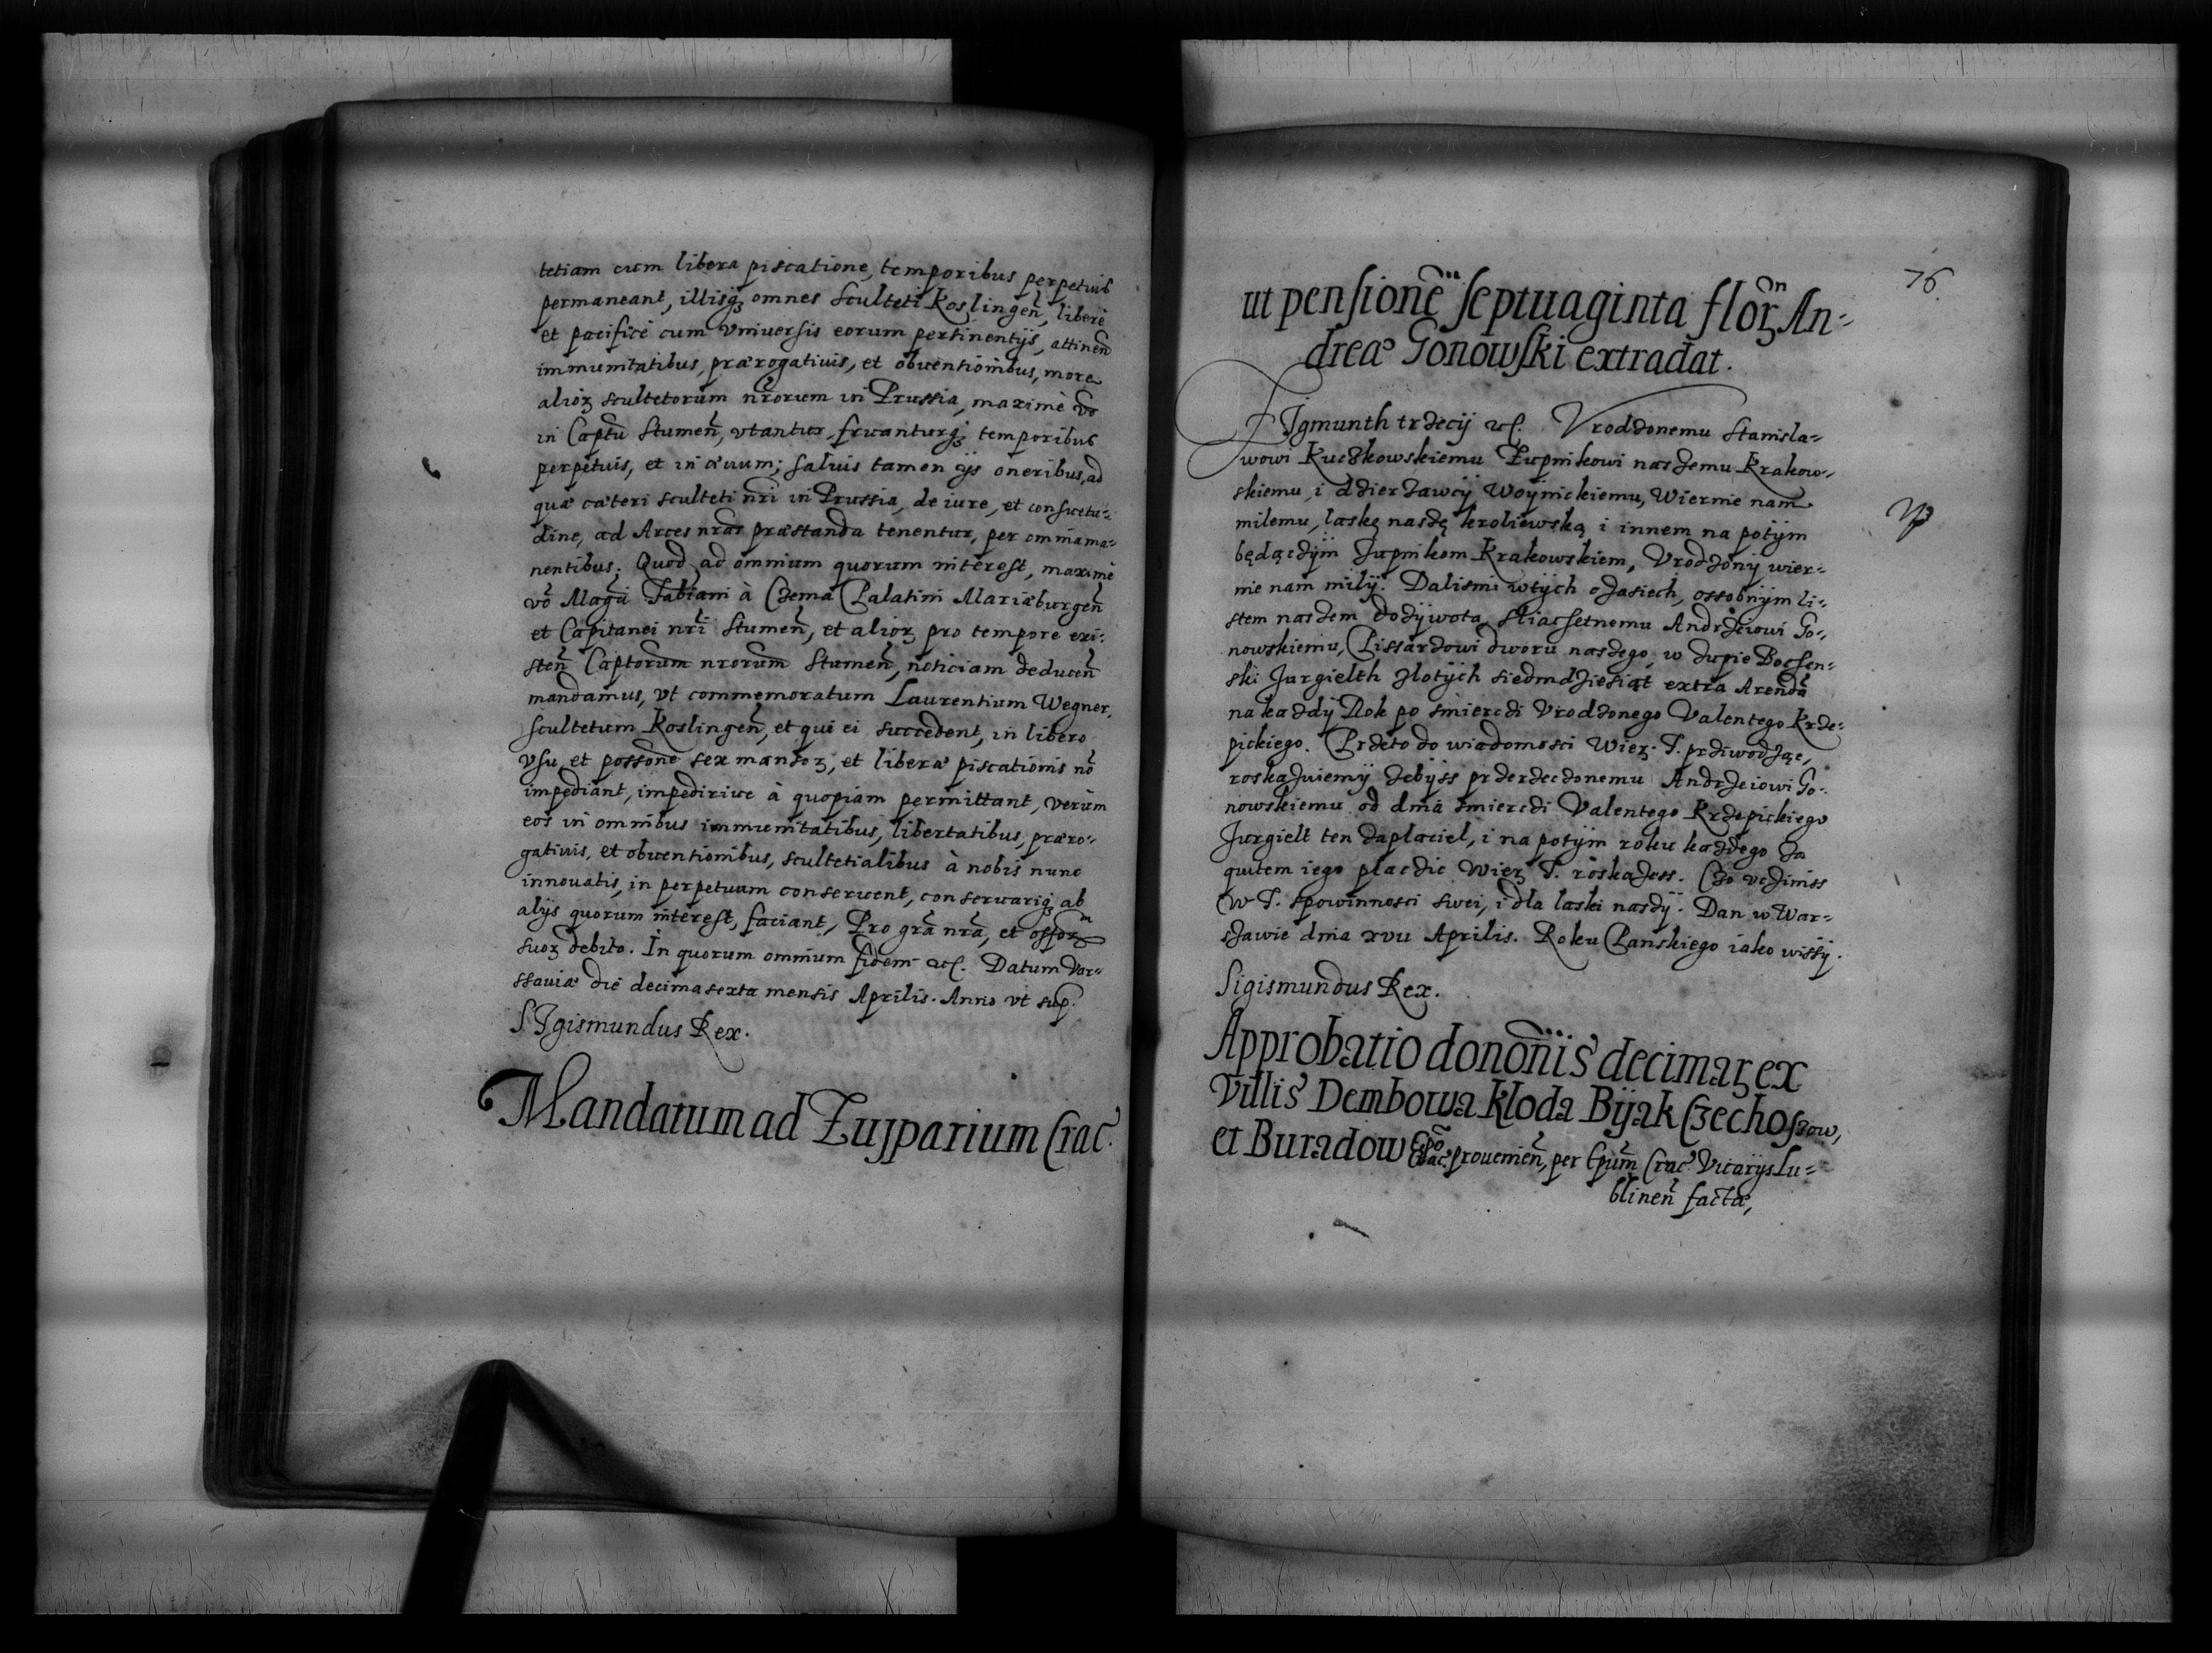 tetiam cum libera piscatione, temporibus perpetuis
permaneant, illisqz omnes Sculteti Koslingen̄, liberè
et pacificè cum vniuersis eorum pertinentijs, attinen̄
immunitatibus, prærogatiuis, et obuentionibus, more
alioꝝ scultetorum nr̄orum in Prussia, maximè vō
in Captū Stumen̄, vtantur fruanturqz temporibus
perpetuis, et in æuum; saluis tamen ijs oneribus, ad
quæ cæteri sculteti nr̄i in Prussia, de iure, et consuetu-
dine, ad Arces nr̄as præstanda tenentur, per omnia ma-
nentibus. Quod ad omnium quorum interest, maximè
vō Magcī Fabiani à Czema Palatini Mariæburgen̄
et Capitanei nr̄i Stumen̄, et alioꝝ pro tempore exi-
sten̄ Captorum nrorum Stumen̄, noticiam deducen̄
mandamus, vt commemoratum Laurentium Wegner,
scultetum Koslingen̄, et qui ei succedent, in libero
vsu, et possōne sex mansoꝝ, et liberæ piscationis nō
impediant, impediriue à quopiam permittant, verùm
eos in omnibus immunitatibus, libertatibus, præro-
gatiuis, et obuentionibus, scultetialibus à nobis nunc
innouatis, in perpetuum conseruent, conseruariqz ab
alijs quorum interest, faciant, Pro grā nrā, et offoꝝ
suoꝝ debito. In quorum omnium fidem etc. Datum Var-
ssauiæ die decima sexta mensis Aprilis. Anno vt sup.
SIgismundus Rex.
Mandatum ad Zupparium Crac.
76.
ut pensionē septuaginta floꝝ An-
dreæ Gonowski extradat.
ZIgmunth trzecij etc. Vrodzonemu Stanisla-
wowi Kuczkowskiemu Zupnikowi naszemu Krakow-
skiemu, i dzierzawcÿ Woÿnickiemu, Wiernie nam
milemu, laskę naszę kroliewską i innem na potÿm
będączÿm Zupnikom Krakowskiem, Vrodzonÿ wier-
nie nam milÿ. Dalismi wtÿch czasiech, ossobnÿm li-
stem naszem dozÿwota, Sliachetnemu Andrzeiowi Go-
nowskiemu, Pissarzowi dworu naszego, w zupie Bochen-
ski Jurgielth zlotÿch siedmdziesiąt extra Arendā
na kazdÿ Rok po smierczi Vrodzonego Valentego Krze-
pickiego. Przeto do wiadomosci Wierz. T. przÿwodząc,
roskazuiemÿ zebÿss przerzeczonemu Andrzeiowi Go-
nowskiemu od dnia smierczi Valentego Krzepickiego
Jurgielt ten zaplaciel, i na potÿm roku kazdego za
quitem iego placzic Wierz T. roskazess. Czo vcziniss
W T. spowinnosci swei, i dla laski naszÿ. Dan w War-
szawie dnia xvii Aprilis. Roku Panskiego iako wissÿ.
Sigismundus Rex.
Approbatio donōnis decimaꝝ ex
Villis Dembowa Kloda Bijak Czechoszow,
et Buradow Epō Crac. prouenien̄, per Epūm Crac. Vicarijs Lu-
blinen̄ factæ,